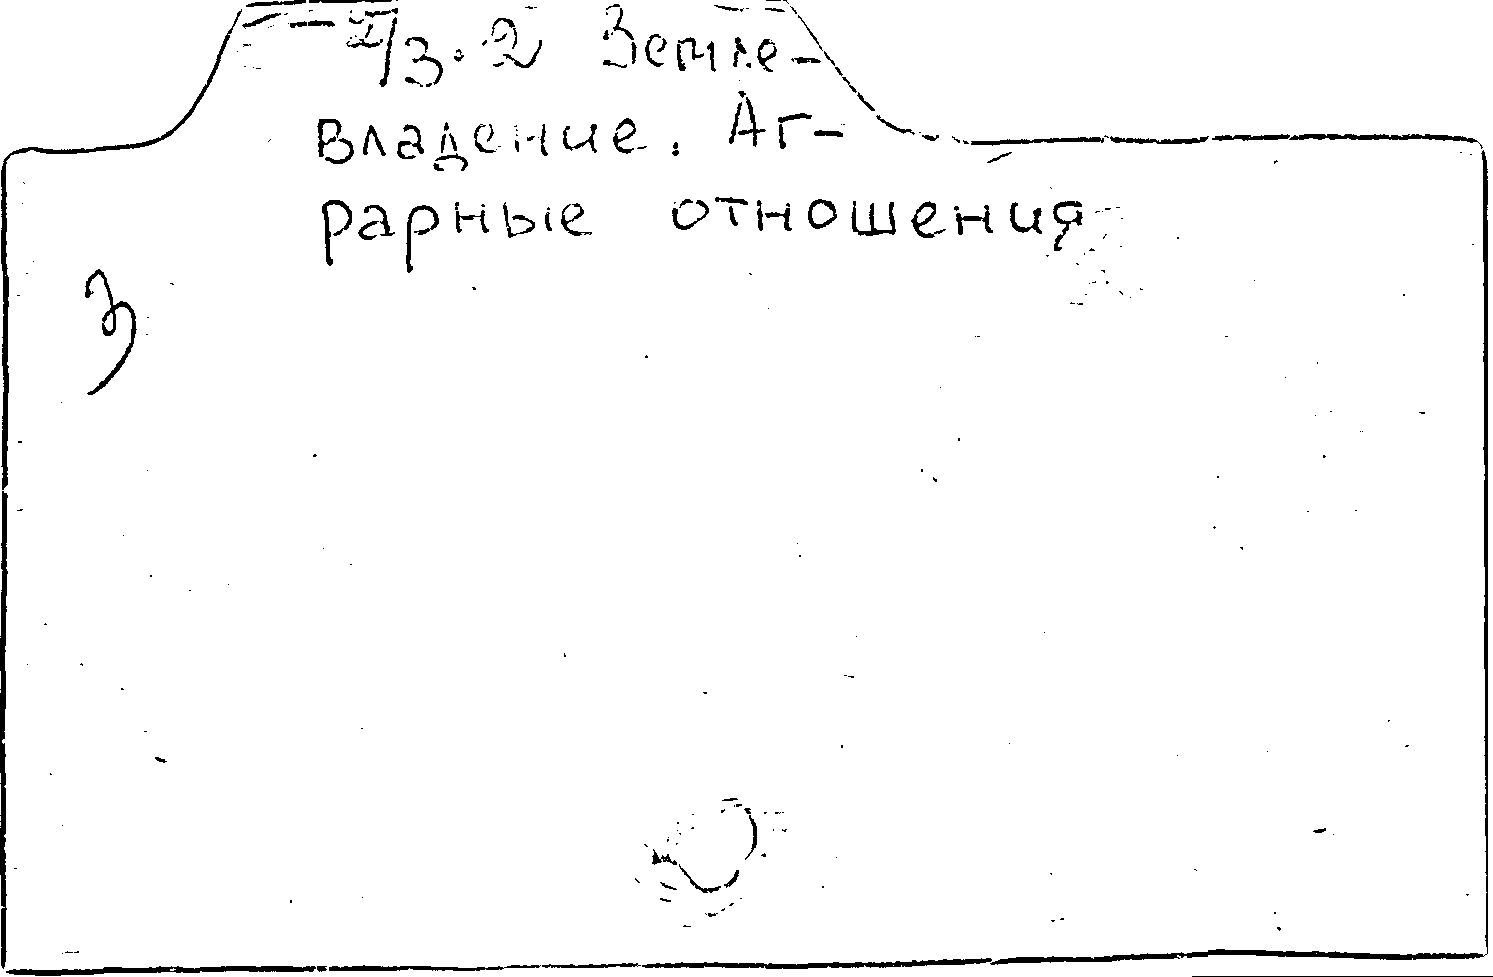 2/3.2 Земле-
владение. Аг-
рарные отношения
3